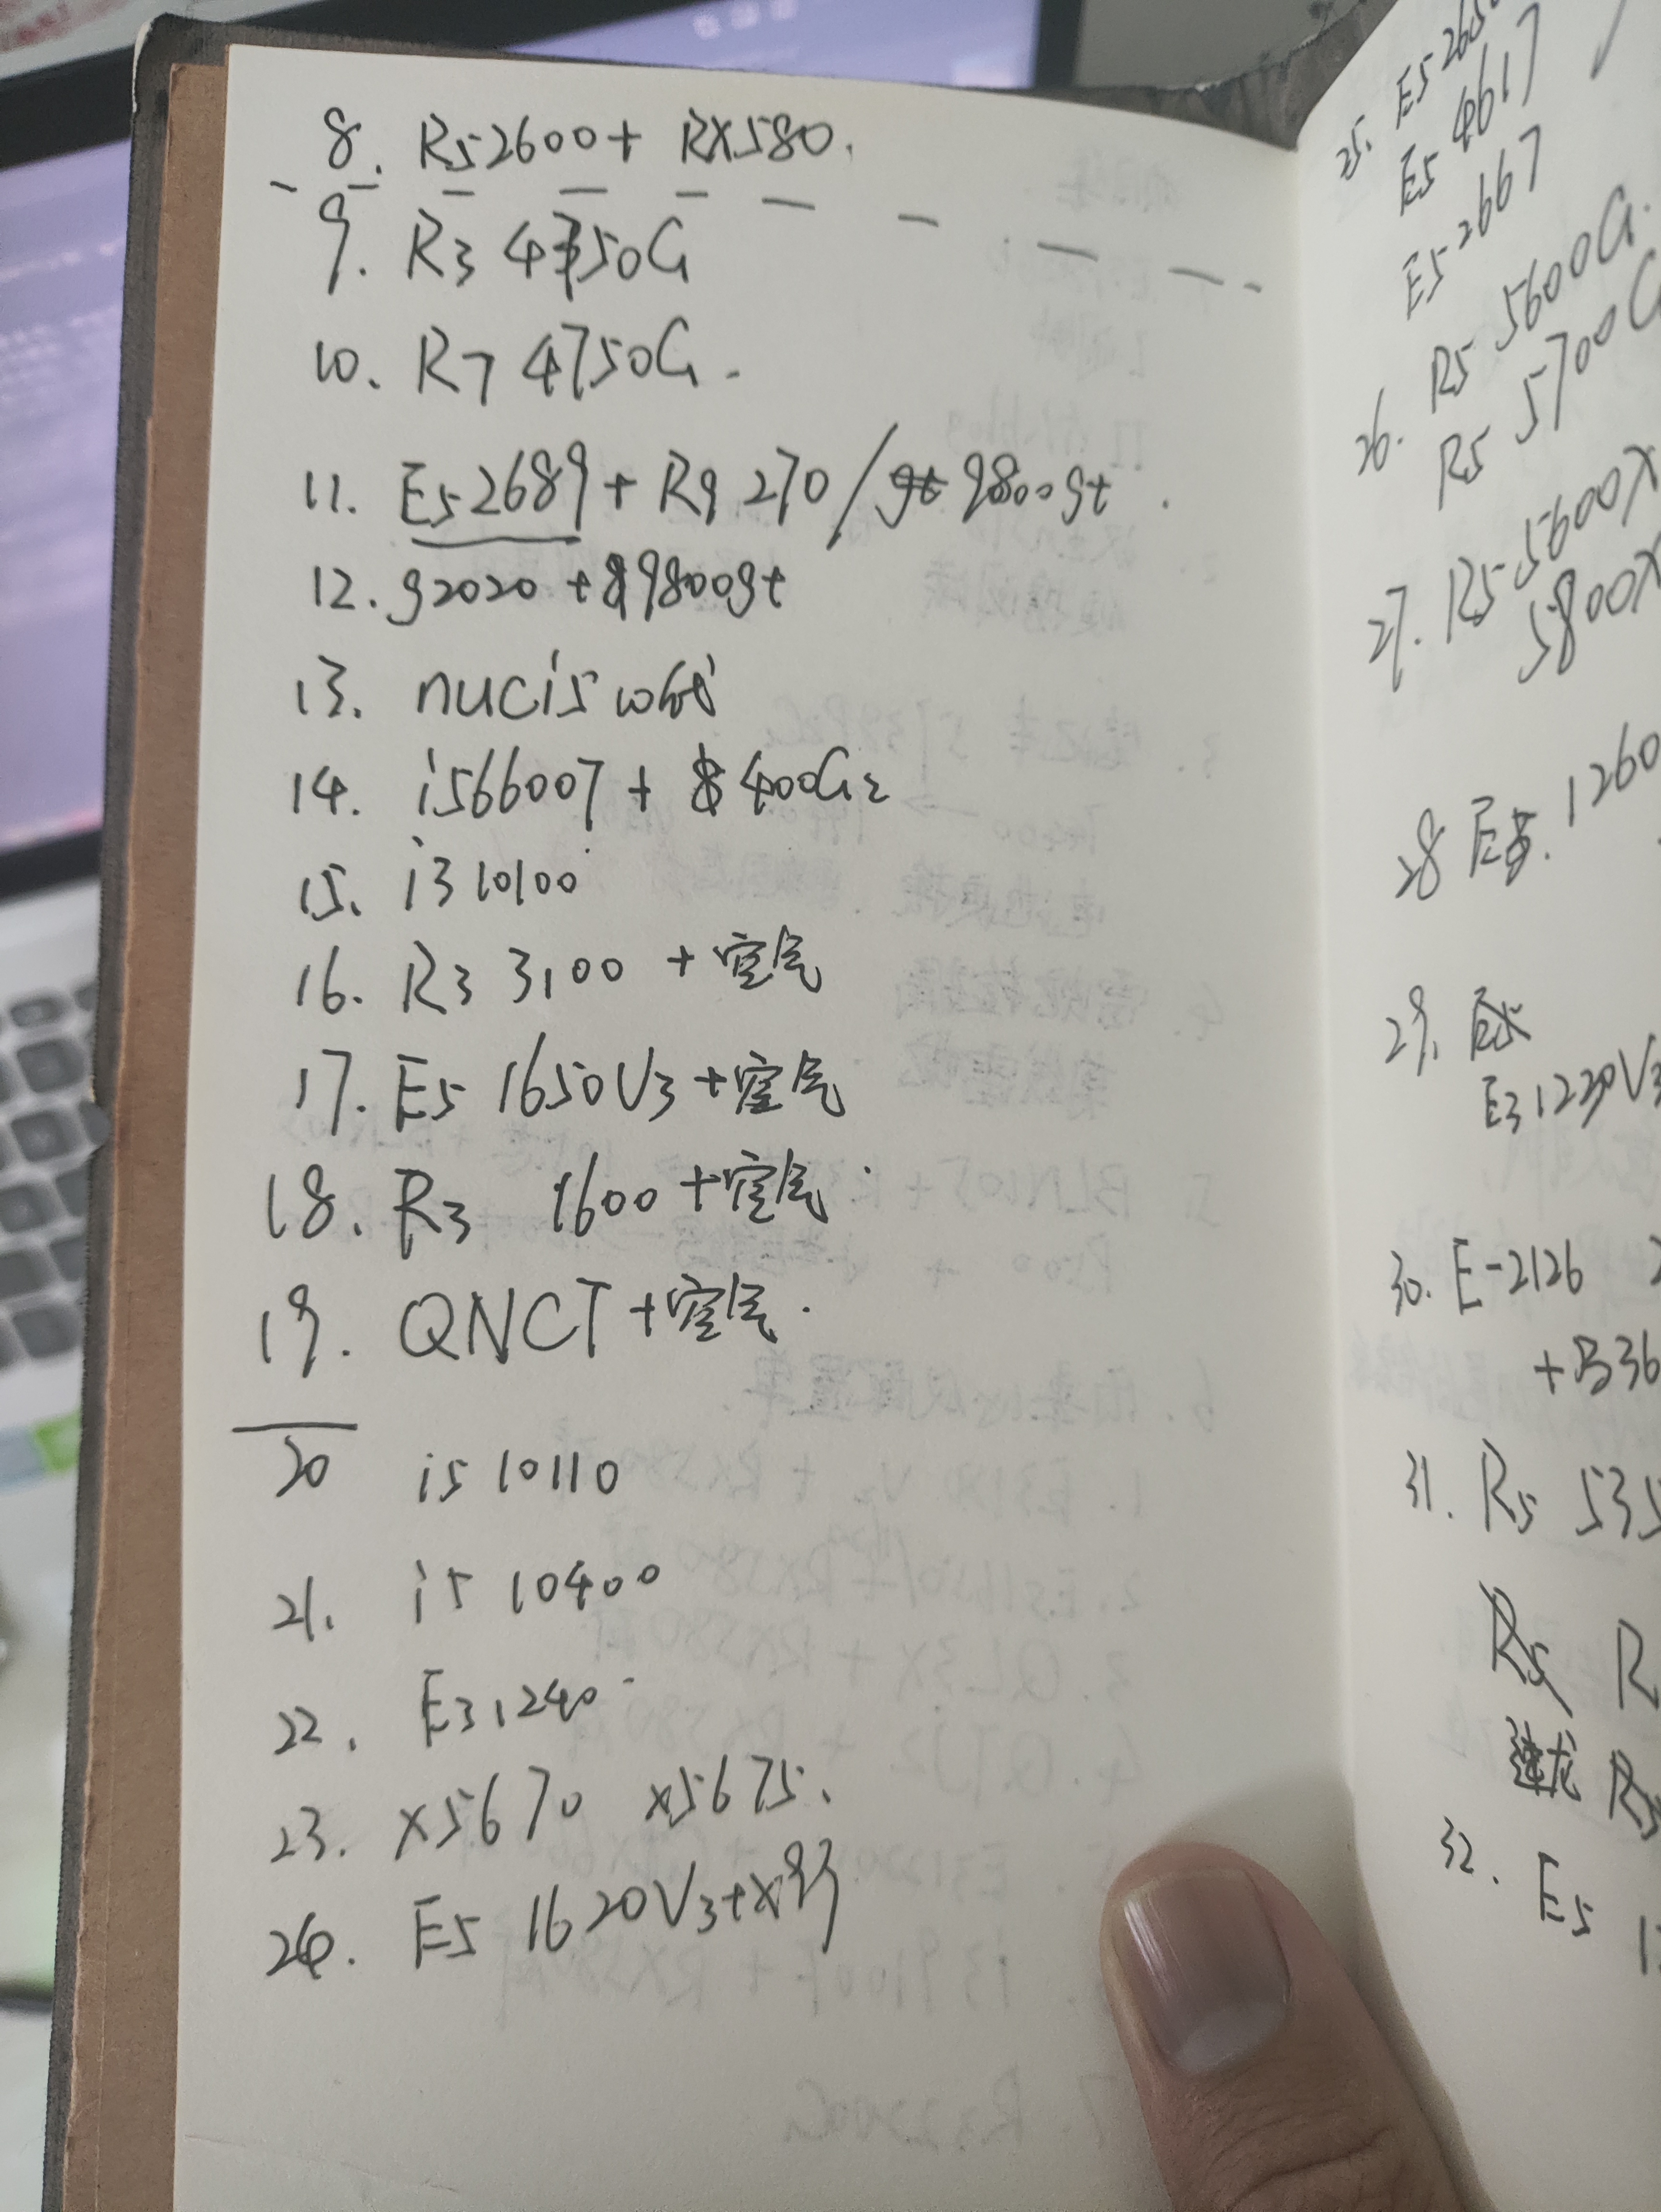 8. R5 2600 + RX580.
9. R3 4350G
10. R7 4750G.
11. E5 2689 + R9 270 / 9800gt
12. g2020 + 9800gt
13. nuc i5
14. i5 6600T + 400G2
15. i3 10100
16. R3 3100 + 空气
17. E5 1650V3 + 空气
18. R3 1600 + 空气
19. QNCT + 空气.
20 i5 10110
21. i5 10400
22. E3 1240
23. x5670 x5675.
24. E5 1620V3 + x99
25. E5 265
E5 4617
E5 2667
26. R5 5600G.
R5 5700G
27. R5 5600X
5800X
28 1260
29.
E3 1230V3
30. E-2126
+B36
31. R5 535
R5 R
速龙 R5
32. E5 1